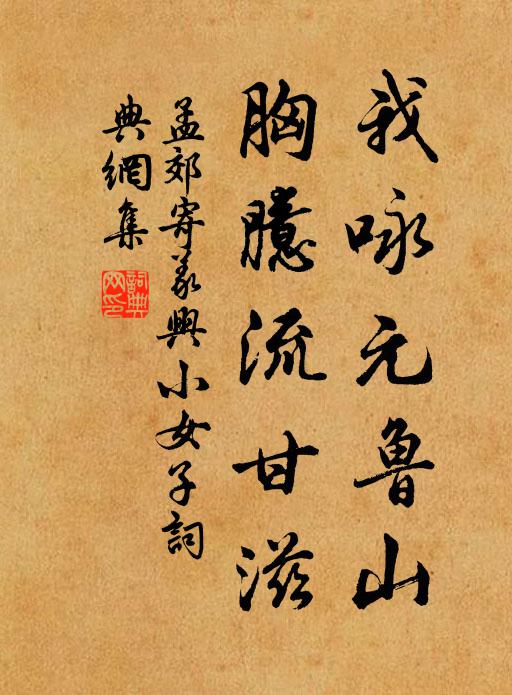 我咏元鲁山
胸臆流甘滋
孟郊寄義興小女子詞
典網集
詞典網印